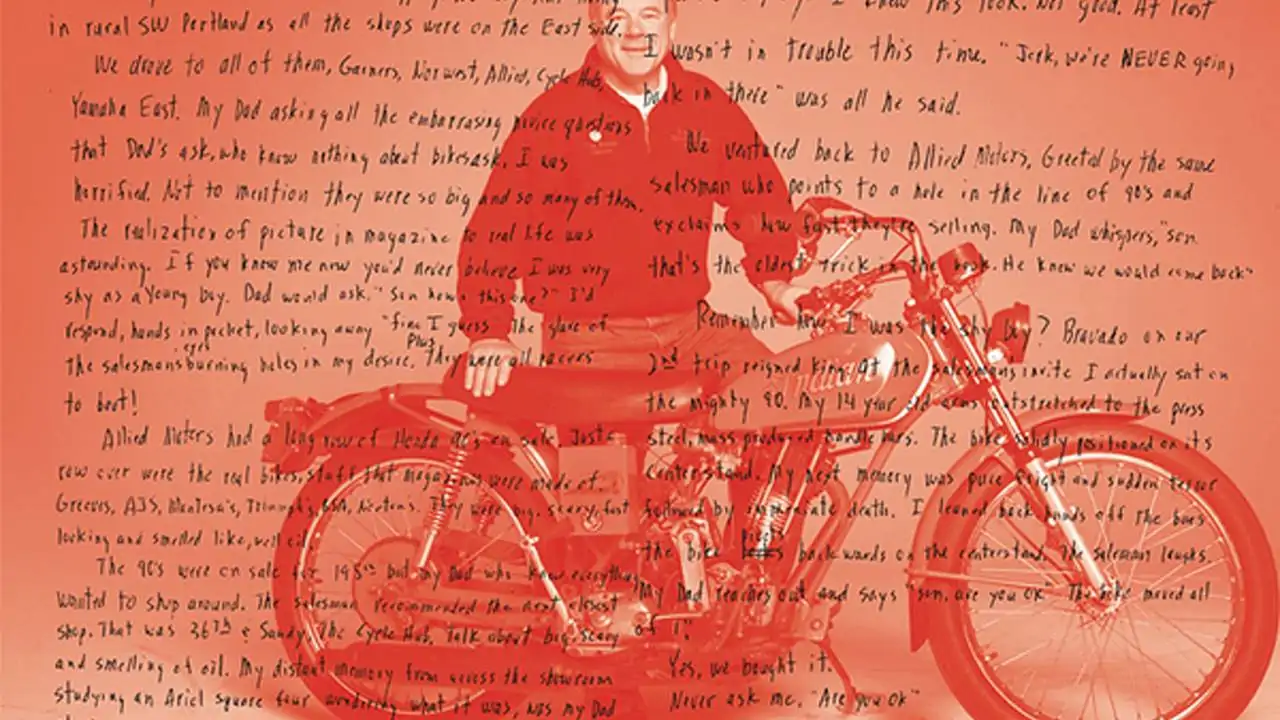 in rural SW Portland as all the shops were on the East side.
We drove to all of them, Garners, Norwest, Allied, Cycle Hub,
Yamaha East. My Dad asking all the embarrasing novice questions
that Dad's ask, who know nothing about bikes ask. I was
horrified. Not to mention they were so big and so many of them.
The realization of picture in magazine to real life was
astounding. If you know me now you'd never believe I was very
shy as a young boy. Dad would ask, "Son how's this one?" I'd
respond, hands in pocket, looking away "fine I guess" The glare of
the salesman's eyes burning holes in my desire. Plus they were all racers
to boot!
Allied Motors had a long row of Honda 90's on sale. Just a
row over were the real bikes, stuff that magazines were made of.
Greeves, AJS, Montesa's, Triumph's, BSA, Nortons. They were big, scary, fast
looking and smelled like, well oil.
The 90's were on sale for 195⁰⁰ but my Dad who knew everything
wanted to shop around. The salesman recommended the next closest
shop. That was 36th & Sandy, The Cycle Hub. Talk about big, scary
and smelling of oil. My distant memory from across the showroom
studying an Ariel square four wondering what it was, was my Dad
I knew this look. Not good. At least
I wasn't in trouble this time. "Jerk, we're NEVER going
back in there" was all he said.
We ventured back to Allied Motors, Greeted by the same
salesman who points to a hole in the line of 90's and
exclaims how fast they're selling. My Dad whispers, "son
that's the oldest trick in the book. He knew we would come back"
Remember how I was the shy boy? Bravado on our
2nd trip reigned king. At the salesmans invite I actually sat on
the mighty 90. My 14 year old arms outstretched to the press
steel, mass produced handle bars. The bike solidly positioned on its
centerstand. My next memory was pure fright and sudden terror
followed by immediate death. I leaned back hands off the bars
the bike pivots backwards on the centerstand. The salesman laughs.
My Dad reaches out and says "son, are you OK" The bike moved all
of 1".
Yes, we bought it.
Never ask me, "Are you ok"
Indian